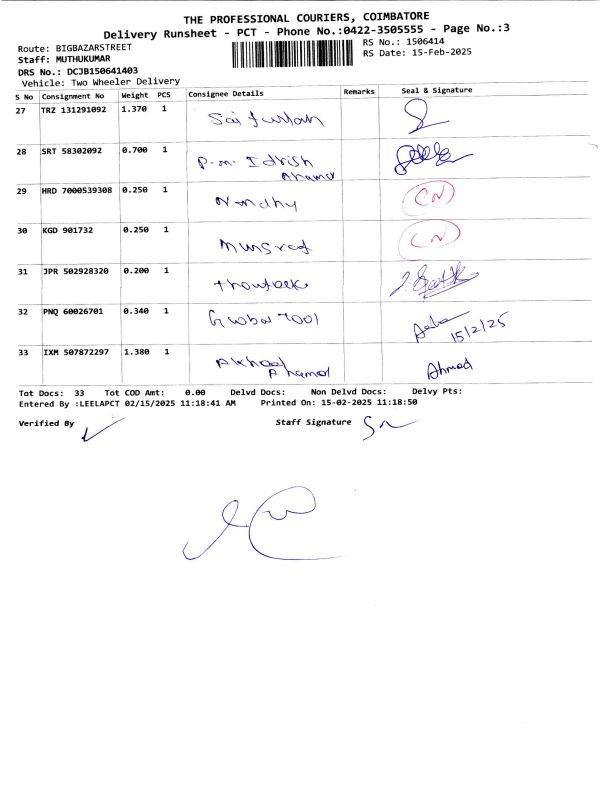 THE PROFESSIONAL COURIERS, COIMBATORE
Delivery Runsheet - PCT - Phone No.:0422-3505555 - Page No.:3
Route: BIGBAZARSTREET
RS No.: 1506414
Staff: MUTHUKUMAR
RS Date: 15-Feb-2025
DRS No.: DCJB150641403
Vehicle: Two Wheeler Delivery
S No Consignment No Weight PCS Consignee Details Remarks Seal & Signature
27 TRZ 131291092 1.370 1 Saifullah
28 SRT 58302092 0.700 1 P.M. Idrish Ahamed
29 HRD 7000539308 0.250 1 Nandhy (CN)
30 KGD 901732 0.250 1 (CN)
31 JPR 502928320 0.200 1
32 PNQ 60026701 0.340 1 Global Tool 15/2/25
33 IXM 507872297 1.380 1 Ahamed Ahmad
Tot Docs: 33 Tot COD Amt: 0.00 Delvd Docs: Non Delvd Docs: Delvy Pts:
Entered By :LEELAPCT 02/15/2025 11:18:41 AM Printed On: 15-02-2025 11:18:50
Verified By Staff Signature